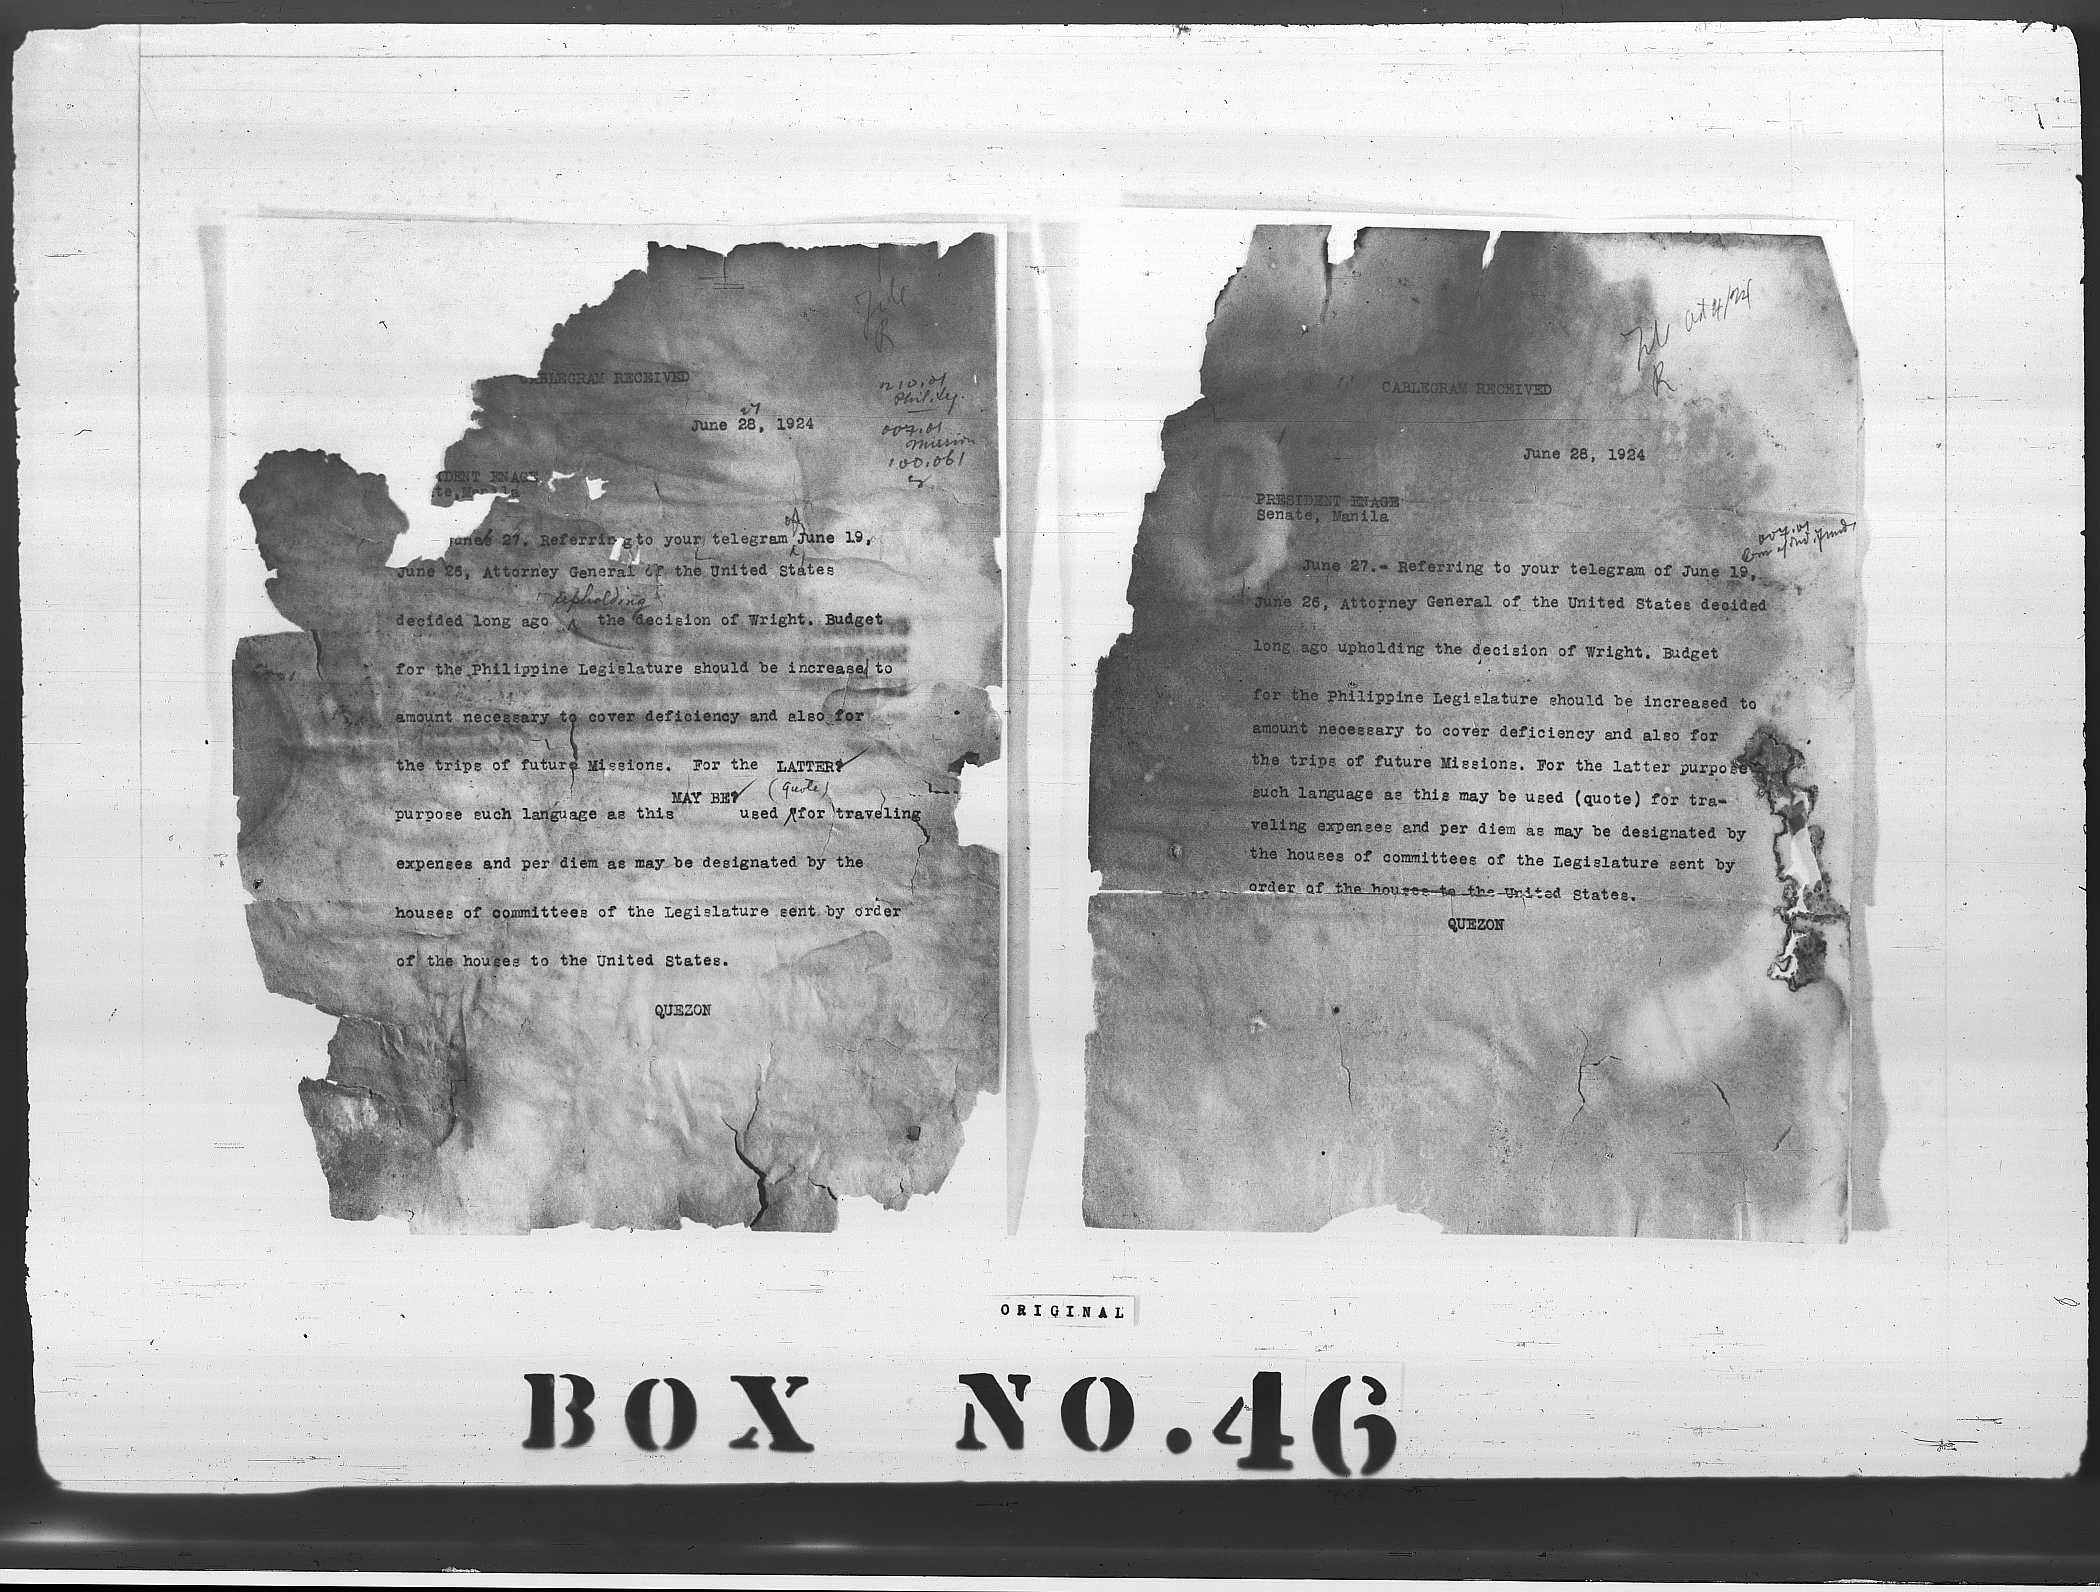 File
R
CABLEGRAM RECEIVED
210.01
Phil. Leg.
27
June 28, 1924
007.01
Mission
100.061
IDENT ENAGE
te, Manila
June 27. Referring to your telegram of June 19,
June 26, Attorney General of the United States
upholding
decided long ago the decision of Wright. Budget
for the Philippine Legislature should be increase to
amount necessary to cover deficiency and also for
the trips of future Missions. For the LATTER?
MAY BE? (quote)
purpose such language as this used for traveling
expenses and per diem as may be designated by the
houses of committees of the Legislature sent by order
of the houses to the United States.
QUEZON
File
R
CABLEGRAM RECEIVED
June 28, 1924
PRESIDENT ENAGE
Senate, Manila
007.01
June 27.- Referring to your telegram of June 19,
June 26, Attorney General of the United States decided
long ago upholding the decision of Wright. Budget
for the Philippine Legislature should be increased to
amount necessary to cover deficiency and also for
the trips of future Missions. For the latter purpose
such language as this may be used (quote) for tra-
veling expenses and per diem as may be designated by
the houses of committees of the Legislature sent by
order of the houses to the United States.
QUEZON
ORIGINAL
BOX NO. 46